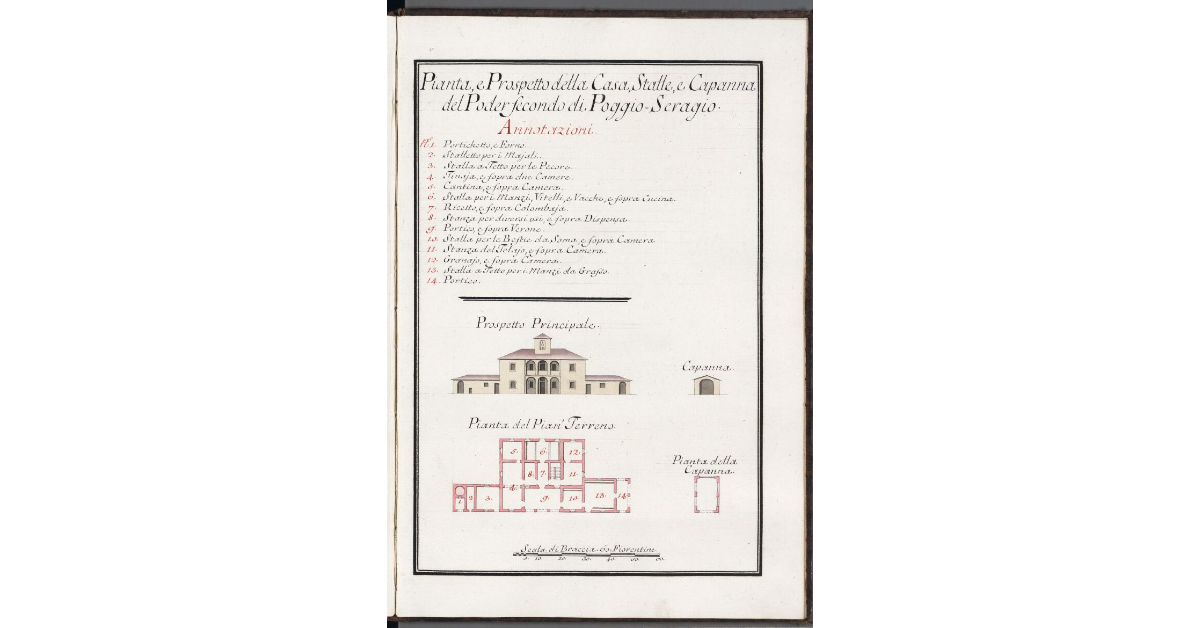 Pianta, e Prospetto della Casa, Stalle, e Capanna
del Poder secondo di Poggio-Seragio.
Annotazioni.
Nº 1. Portichetto, e Forno.
2. Stalletto per i Majali.
3. Stalla a Tetto per le Pecore.
4. Tinaja, e sopra due Camere.
5. Cantina, e sopra Camera.
6. Stalla per i Manzi, Vitelli, e Vacche, e sopra Cucina.
7. Ricetto, e sopra Colombaja.
8. Stanza per diversi usi, e sopra Dispensa.
9. Portico, e sopra Verone.
10. Stalla per le Bestie da Soma, e sopra Camera
11. Stanza del Telajo, e sopra Camera.
12. Granajo, e sopra Camera.
13. Stalla a Tetto per i Manzi da Grasso.
14. Portico.
Prospetto Principale.
Capanna.
Pianta del Pian' Terreno
5. 6. 12.
8. 7. 11.
4.
1. 2. 3. 9. 10. 13. 14.
Pianta della
Capanna.
Scala di Braccia 60 Fiorentine
10. 20. 30. 40. 50. 60.